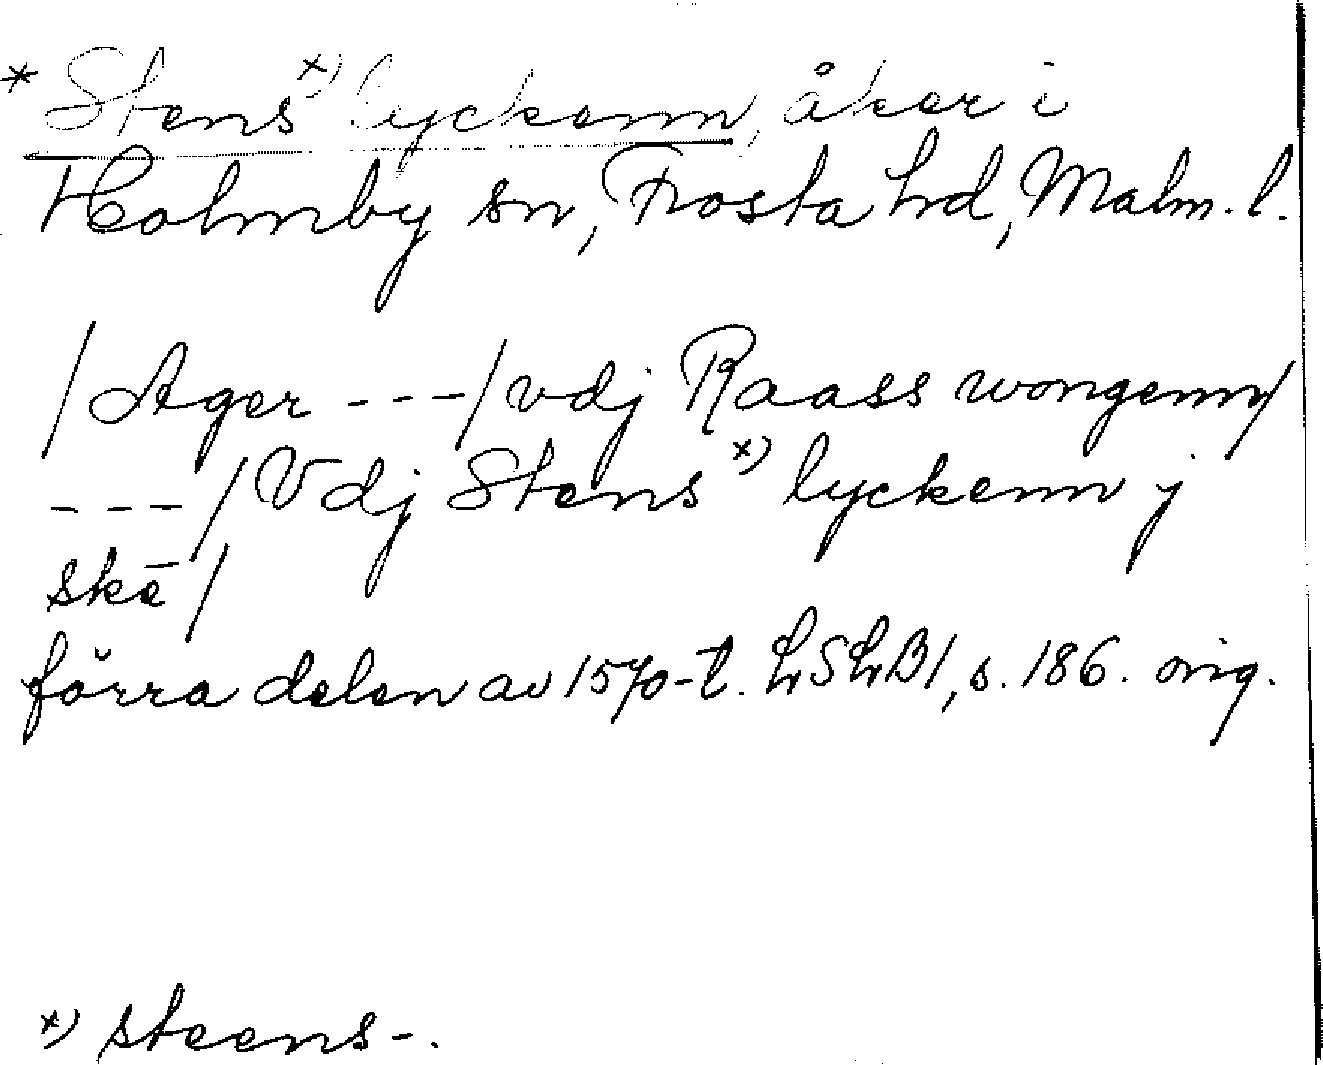 * Stens x) lyckenn, åker i
Holmby sn, Frosta hd, Malm. l.
/Ager ---/ vdj Raass wongenn/
---/ Vdj Stens x) lyckenn j
skē/
förra delen av 1570-t. LSLB1, s. 186. orig.
x) steens-.